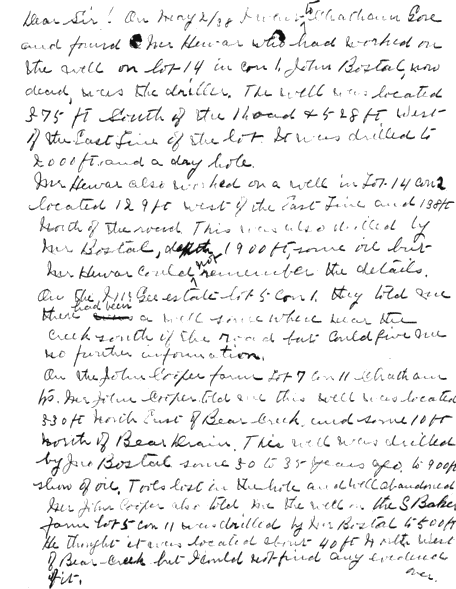 Dear Sir! On May 2/38 I went to Chatham Gore
and found Mr Hewar who had worked on
the well on lot 14 in con 1, John Bostal, now
dead, was the driller. The well was located
375 ft South of the Road & 528 ft West
of the East Line of the lot. It was drilled to
2000 ft, and a dry hole.
Mr Hewar also worked on a well in Lot 14 con 2
located 129 ft west of the East Line and 138 ft
North of the road This was also drilled by
Mr Bostal, depth 1900 ft, some oil but
Mr Hewar could not remember the details.
On the Gee estate lot 5 con 1. they told me
there had been a well some where near the
Creek south of the road but could give me
no further information.
On the John Cooper farm Lot 7 con 11 Chatham
Mr John Cooper told me this well was located
330 ft North East of Bear Creek and some 10 ft
North of Bear Drain. This well was drilled
by Jno Bostal some 30 to 35 years ago, to 900 ft
show of oil. Tools lost in the hole and well abandoned
Mr John Cooper also told me the well on the S Baker
farm lot 5 con 11 was drilled by Mr Bostal to 500 ft
He thought it was located about 40 ft North West
of Bear Creek but I could not find any evidence
of it. over.